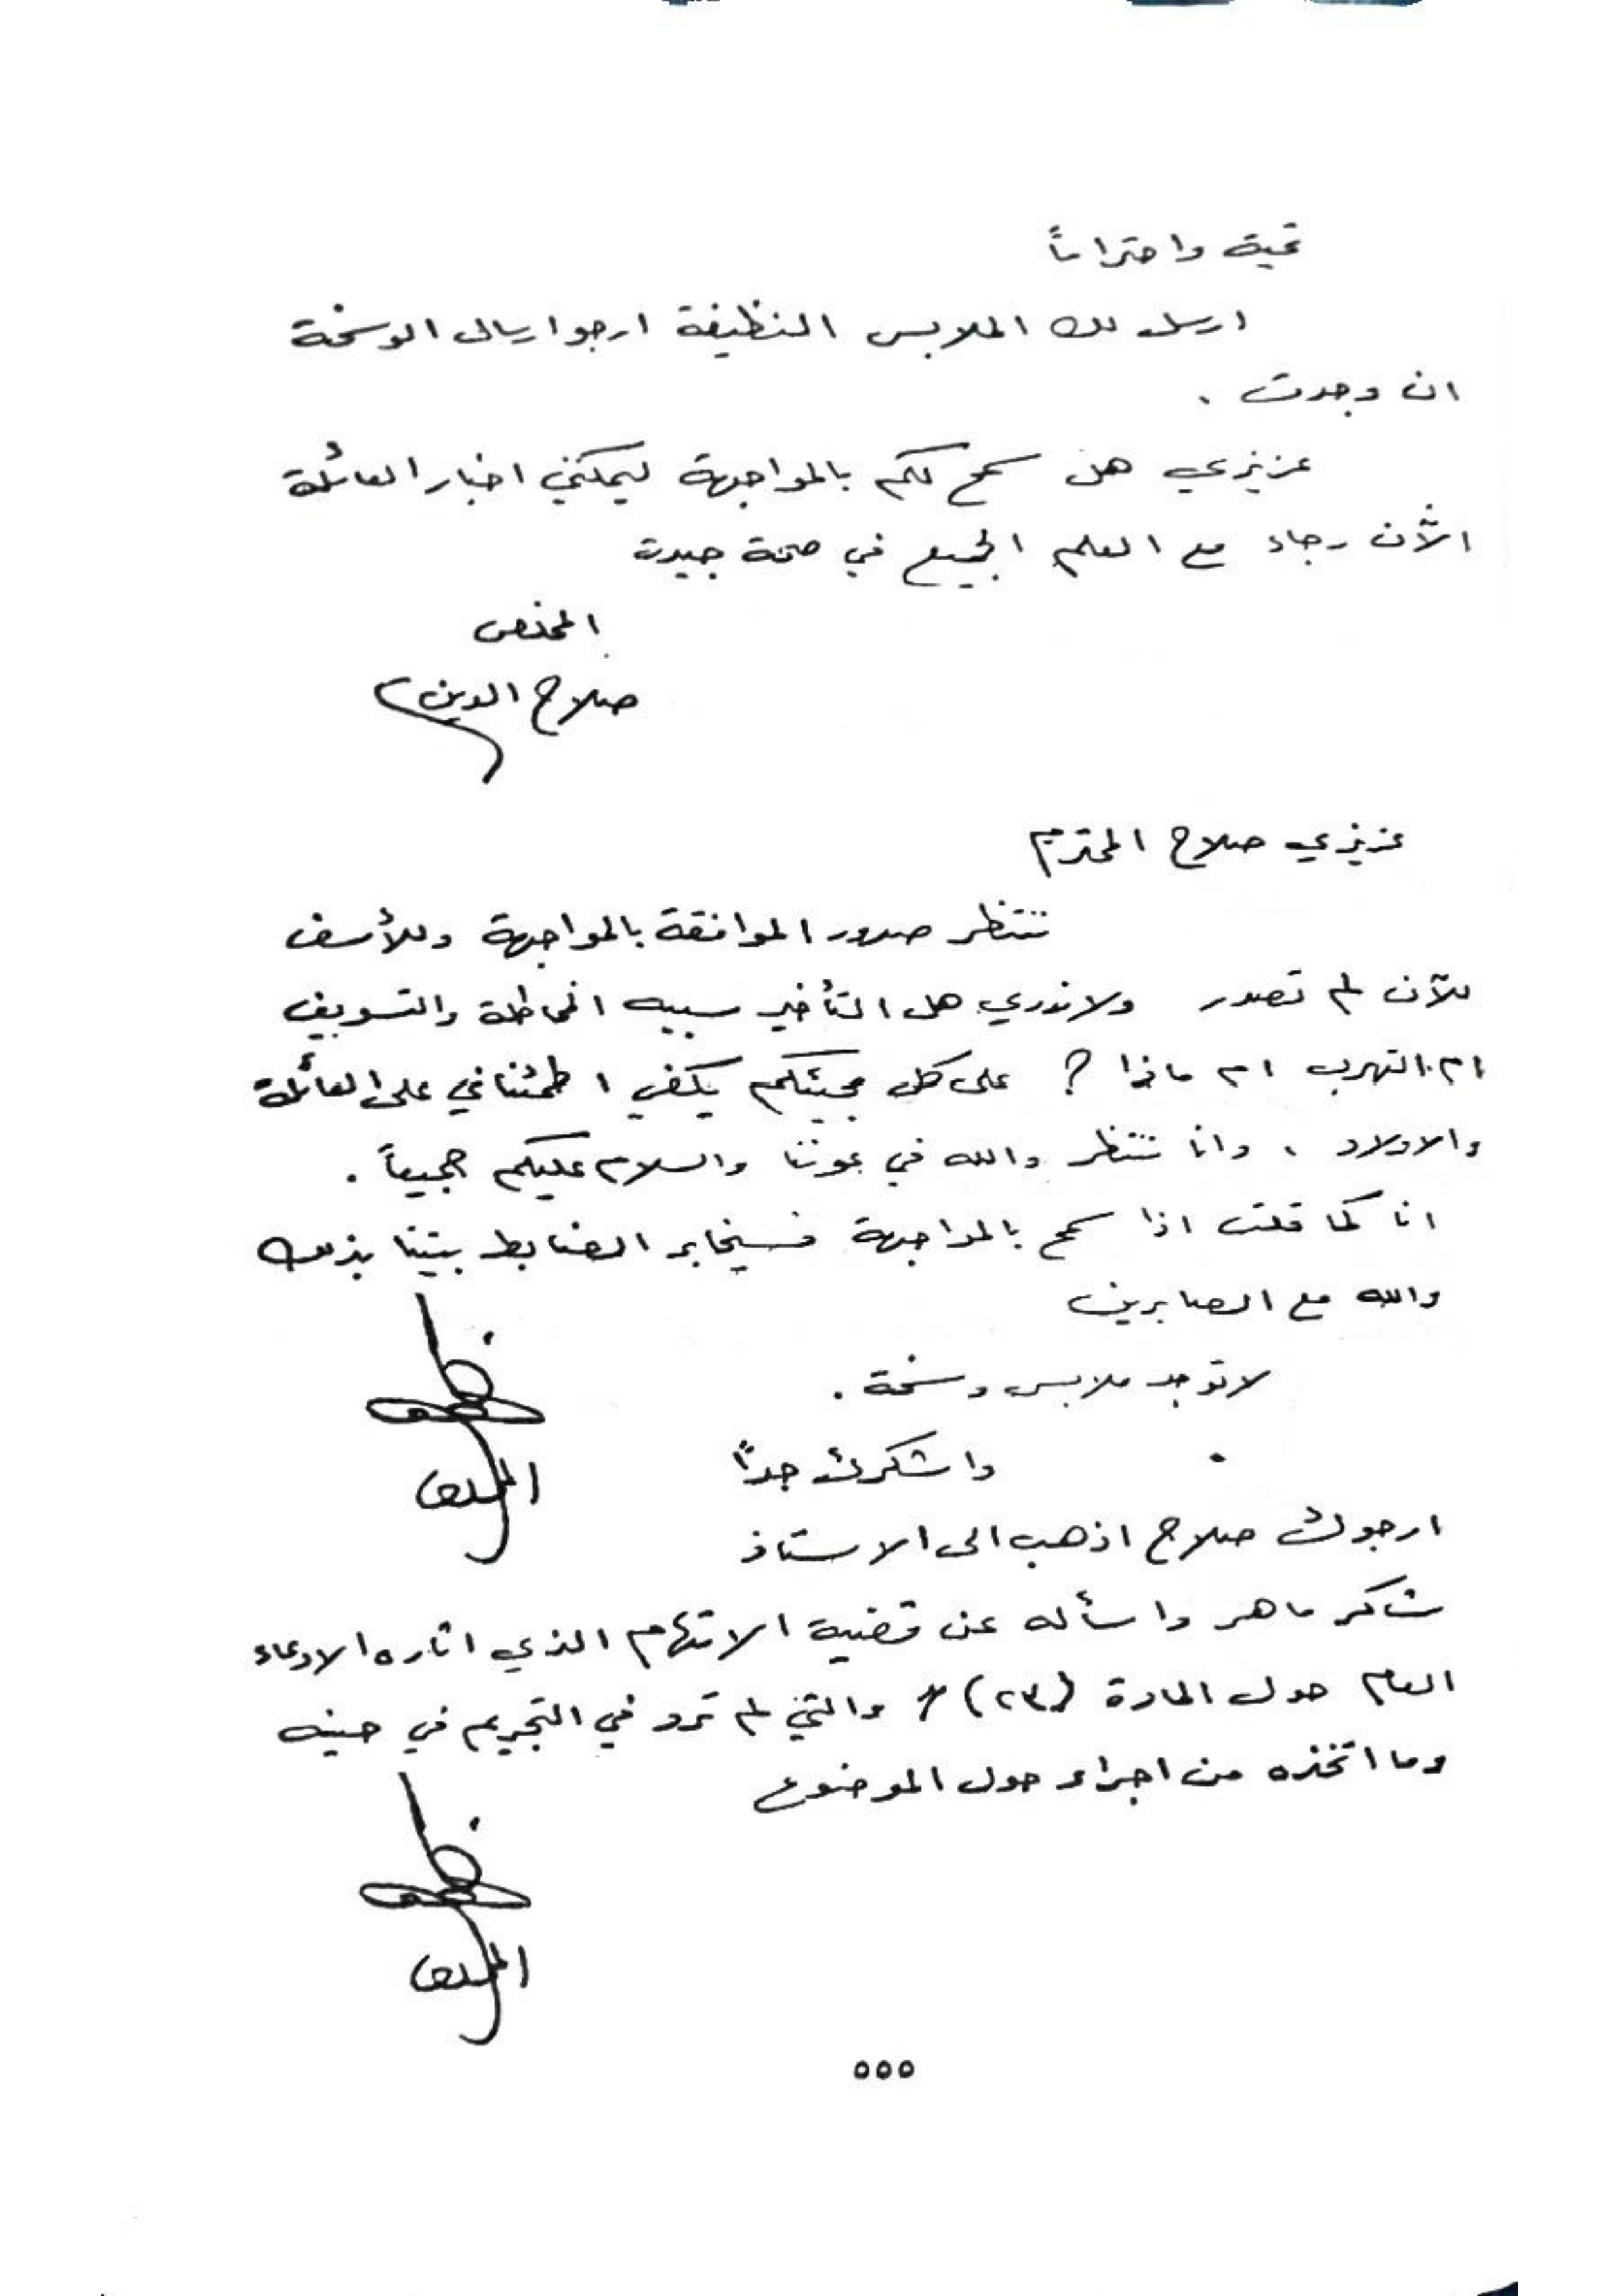 تحية واحتراماً
ارسل لك الملابس النظيفة ارجو ارسال الوسخة
ان وجدت .
عزيزي هل سمح لكم بالمواجهة ليمكنني اخبار العائلة
الآن رجاء مع العلم الجميع في صحة جيدة
المخلص
صلاح الدين
عزيزي صلاح المحترم
ننتظر صدور الموافقة بالمواجهة وللأسف
للآن لم تصدر ولا ندري هل التأخير سببه المماطلة والتسويف
ام التهرب ام ماذا ؟ على كل مجيئكم يكفي اطمئناني على العائلة
والاولاد ، وانا ننتظر والله في عوننا والسلام عليكم جميعاً .
انا كما قلت اذا سمح بالمواجهة فسيخابر الضابط بيتنا بذلك
والله مع الصابرين
لا توجد ملابس وسخة .
واشكرك جداً
ارجوك صلاح اذهب الى الاستاذ
شاكر ماهر واسأله عن قضية الاتهام الذي اثاره الادعاء
العام حول المادة (٢٣) والتي لم ترد في التجريم في حينه
وما اتخذه من اجراء حول الموضوع
٥٥٥